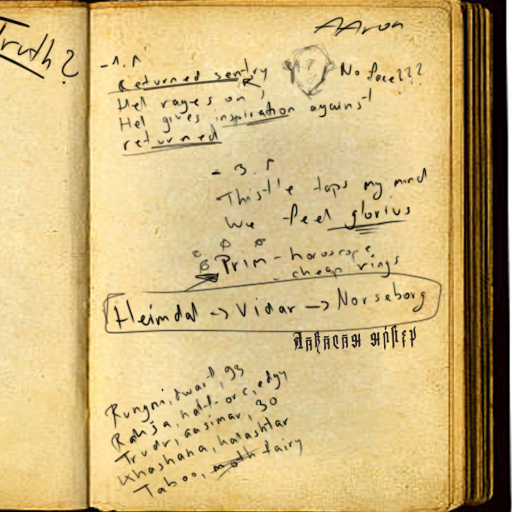 Truth?
AAron
-1.1
Returned sentry
No face???
Hel rages on,
Hel gives inspiration against
returned
- 3. 1
Thistle taps my mind
We feel glorius
Prim - horoscope
- cheap rings
Heimdal -> Vidar -> Norseborg
Rungni, dwarf, 93
half-orc, edgy
Trudr, aasimar, 30
Khashana, kalashtar
Taboo, moth fairy